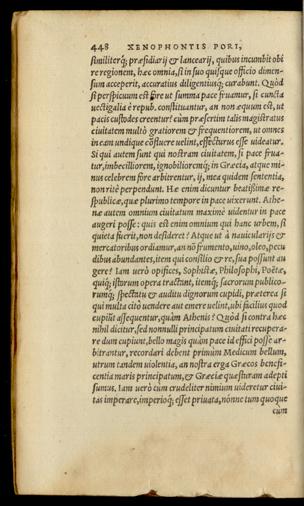 448 XENOPHONTIS PORI,
similiterq́; præsidiarij & lancearij, quibus incumbit obi
re regionem, hæc omnia, si in suo quisque officio dimen-
sum acceperit, accuratius diligentiusq́; curabunt. Quòd
si perspicuum est fore ut summa pace fruamur, si cuncta
uectigalia è repub. constituantur, an non æquum est, ut
pacis custodes creentur? cùm præsertim talis magistratus
ciuitatem multò gratiorem & frequentiorem, ut omnes
in eam undique cōfluere uelint, effecturus esse uideatur.
Si qui autem sunt qui nostram ciuitatem, si pace frua-
tur, imbecilliorem, ignobilioremq́; in Græcia, atque mi-
nus celebrem fore arbitrentur, ij, mea quidem sententia,
non ritè perpendunt. Hæ enim dicuntur beatissimæ re-
spublicæ, quæ plurimo tempore in pace uixerunt. Athe-
næ autem omnium ciuitatum maximè uidentur in pace
augeri posse: quis est enim omnium qui hanc urbem, si
quieta fuerit, non desideret? Atque ut à nauicularijs &
mercatoribus ordiamur, an nō frumento, uino, oleo, pecu
dibus abundantes, item qui consilio & re, sua possunt au
gere? Iam uerò opifices, Sophistæ, Philosophi, Poëtæ,
quiq́; istorum opera tractant, itemq́; sacrorum publico-
rumq́; spectatu & auditu dignorum cupidi, præterea si
qui multa citò uendere aut emere uelint, ubi facilius quod
cupiūt assequentur, quàm Athenis? Quòd si contra hæc
nihil dicitur, sed nonnulli principatum ciuitati recupera-
re dum cupiunt, bello magis quàm pace id effici posse ar-
bitrantur, recordari debent primùm Medicum bellum,
utrum tandem uiolentia, an nostra erga Græcos benefi-
centia maris principatum, & Græciæ quæsturam adepti
sumus. Iam uerò cum crudeliter nimium uideretur ciui-
tas imperare, imperioq́; esset priuata, nónne tum quoque
cum